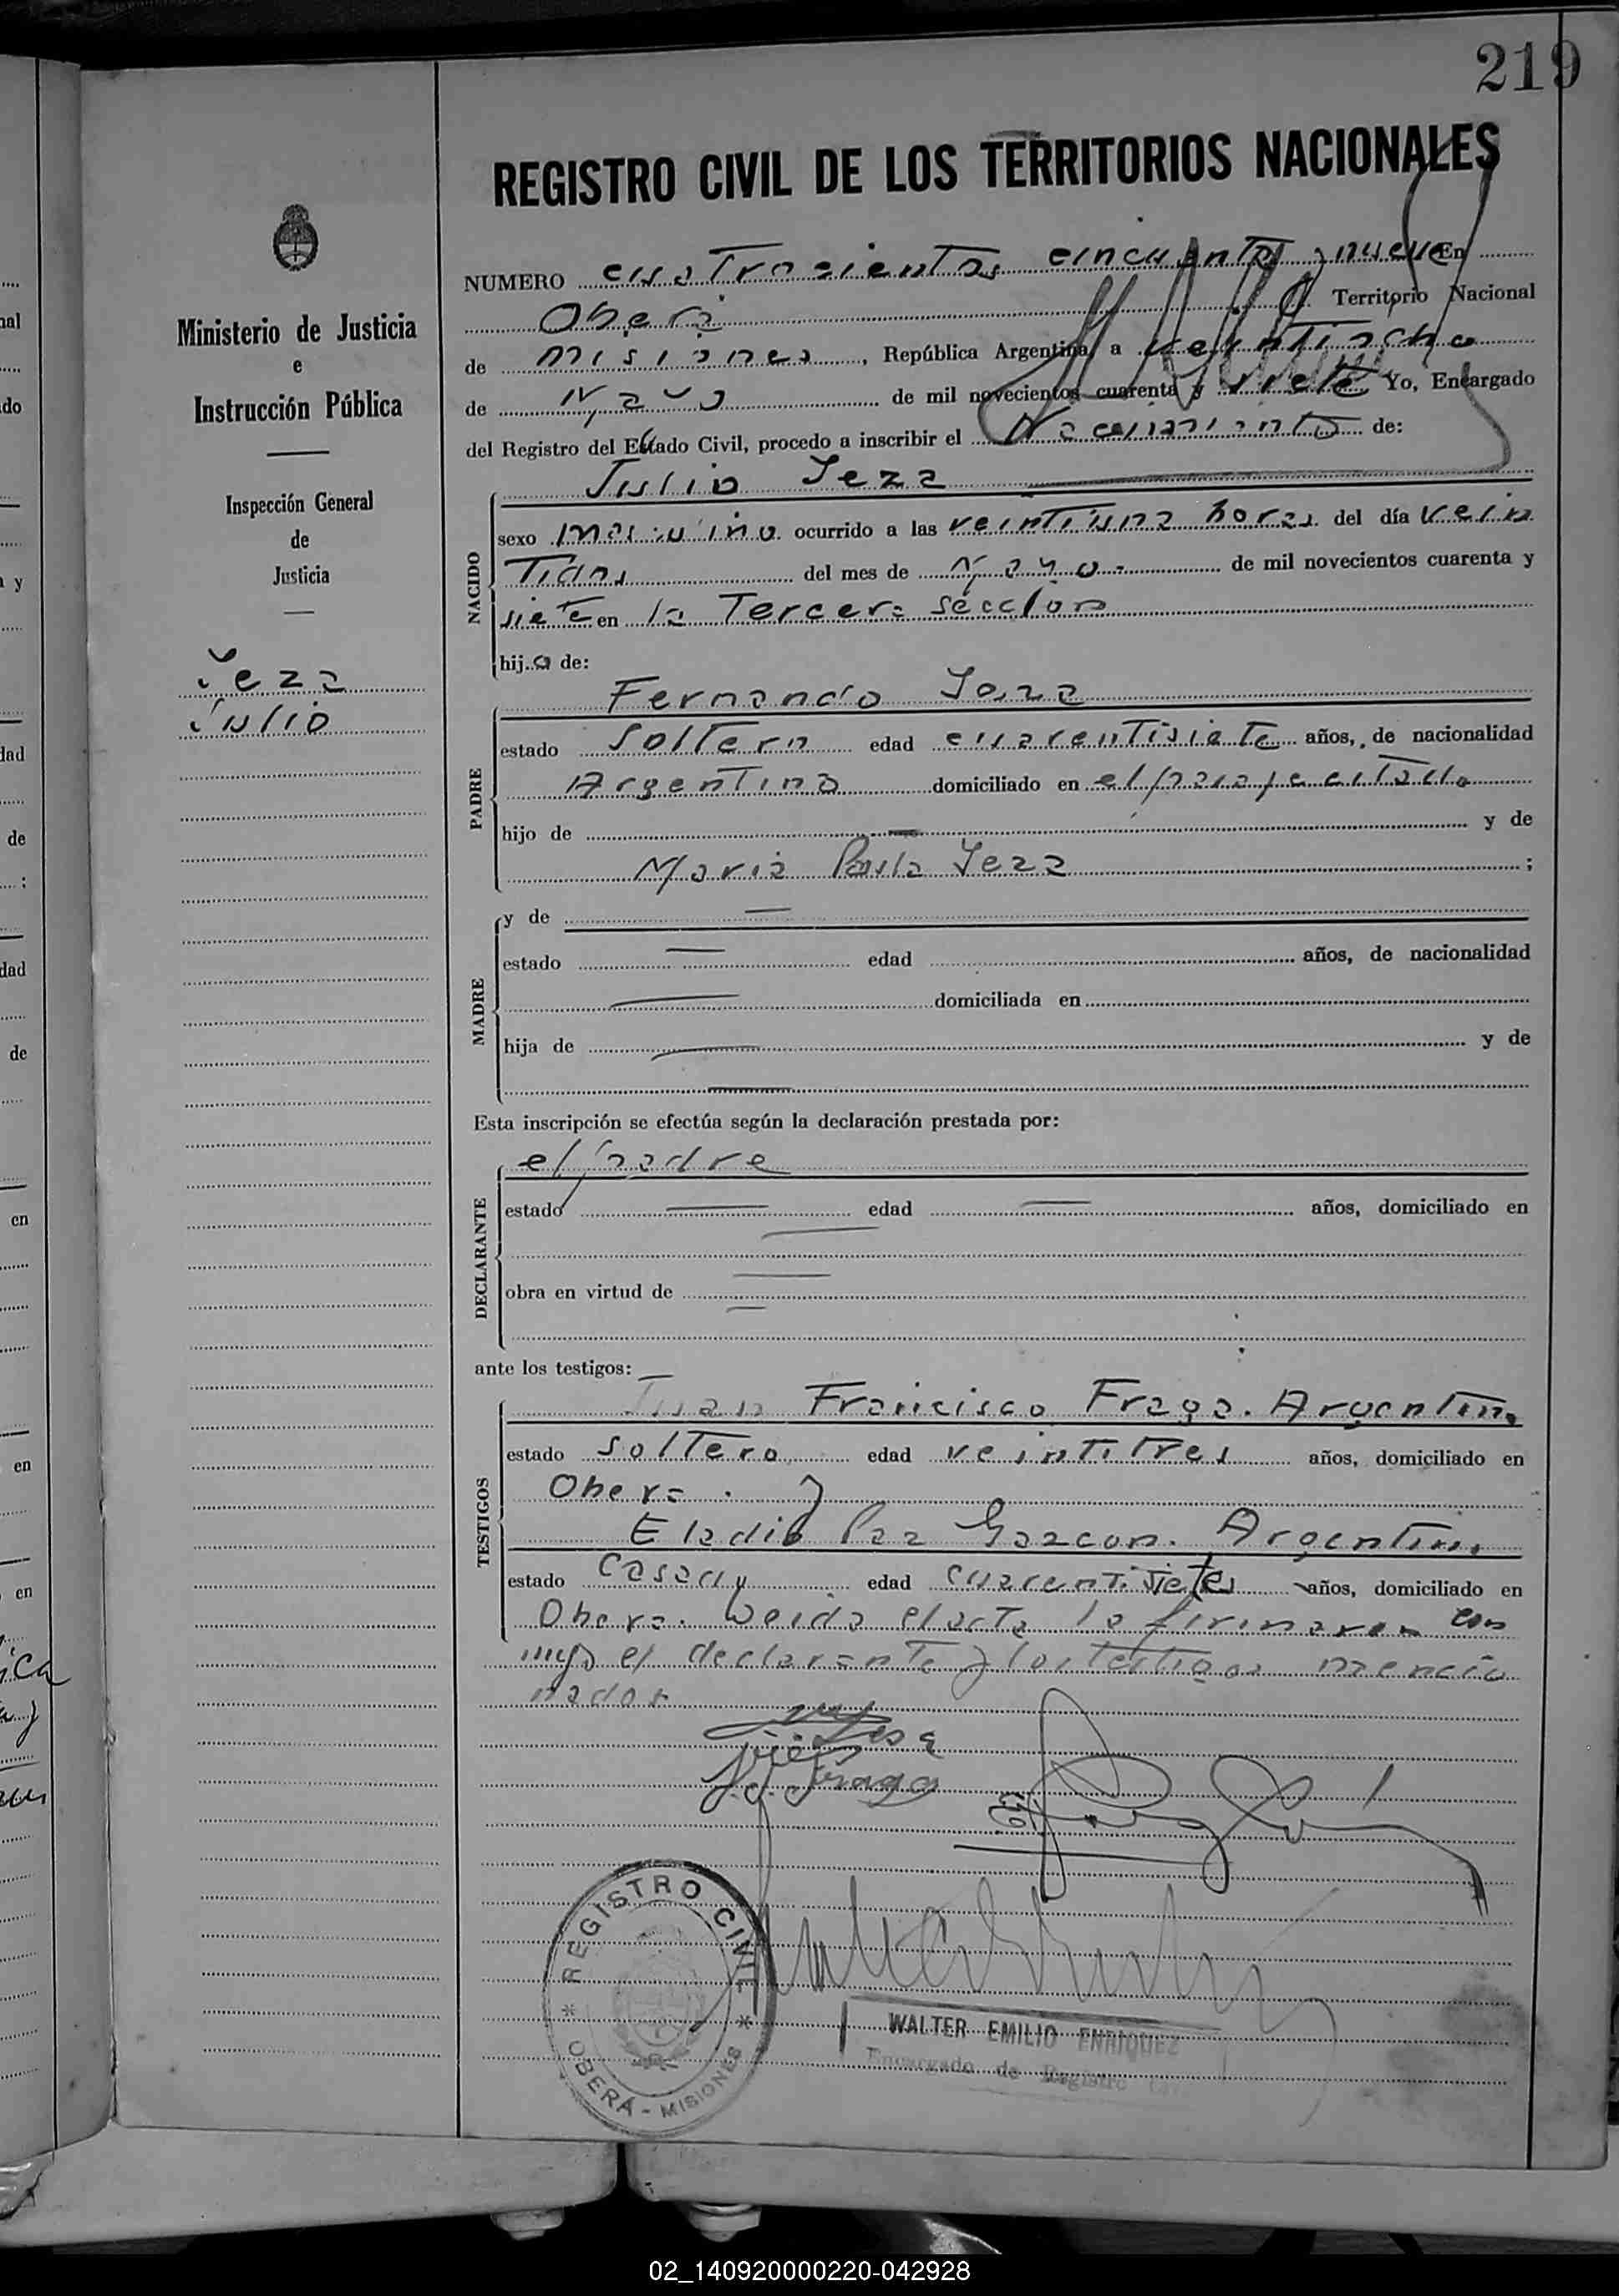 219
REGISTRO CIVIL DE LOS TERRITORIOS NACIONALES
NUMERO cuatrocientos cincuenta y nueve En
Oberá Territorio Nacional
de Misiones, República Argentina, a veintiocho
de Mayo de mil novecientos cuarenta y siete Yo, Encargado
del Registro del Estado Civil, procedo a inscribir el Nacimiento de:
Julio Jeza
NACIDO
sexo masculino ocurrido a las veintiuna horas del día vein
del mes de Mayo de mil novecientos cuarenta y
siete en la Tercera sección
hijo de:
Fernando
PADRE
estado soltero edad cuarentisiete años, de nacionalidad
Argentina domiciliado en el paraje citado
hijo de — y de
Maria Paula Jeza ;
MADRE
y de —
estado — edad años, de nacionalidad
— domiciliada en
hija de — y de
—
Esta inscripción se efectúa según la declaración prestada por:
el padre
DECLARANTE
estado — edad — años, domiciliado en
—
obra en virtud de —
—
ante los testigos:
Juan Francisco Fraga. Argentino
TESTIGOS
estado soltero edad veintitres años, domiciliado en
Obera. y
Eladio Paz Garzon. Argentino
estado Casado edad cuarentisiete años, domiciliado en
Obera. Leida el acta la firmaron con
migo el declarante y los testigos mencio
nados
J. F. Fraga
REGISTRO CIVIL
* OBERÁ - MISIONES *
WALTER EMILIO ENRIQUEZ
Encargado de Registro
Ministerio de Justicia
e
Instrucción Pública
Inspección General
de
Justicia
Jeza
Julio
nal
do
y
dad
de
;
dad
de
en
en
en
02_140920000220-042928